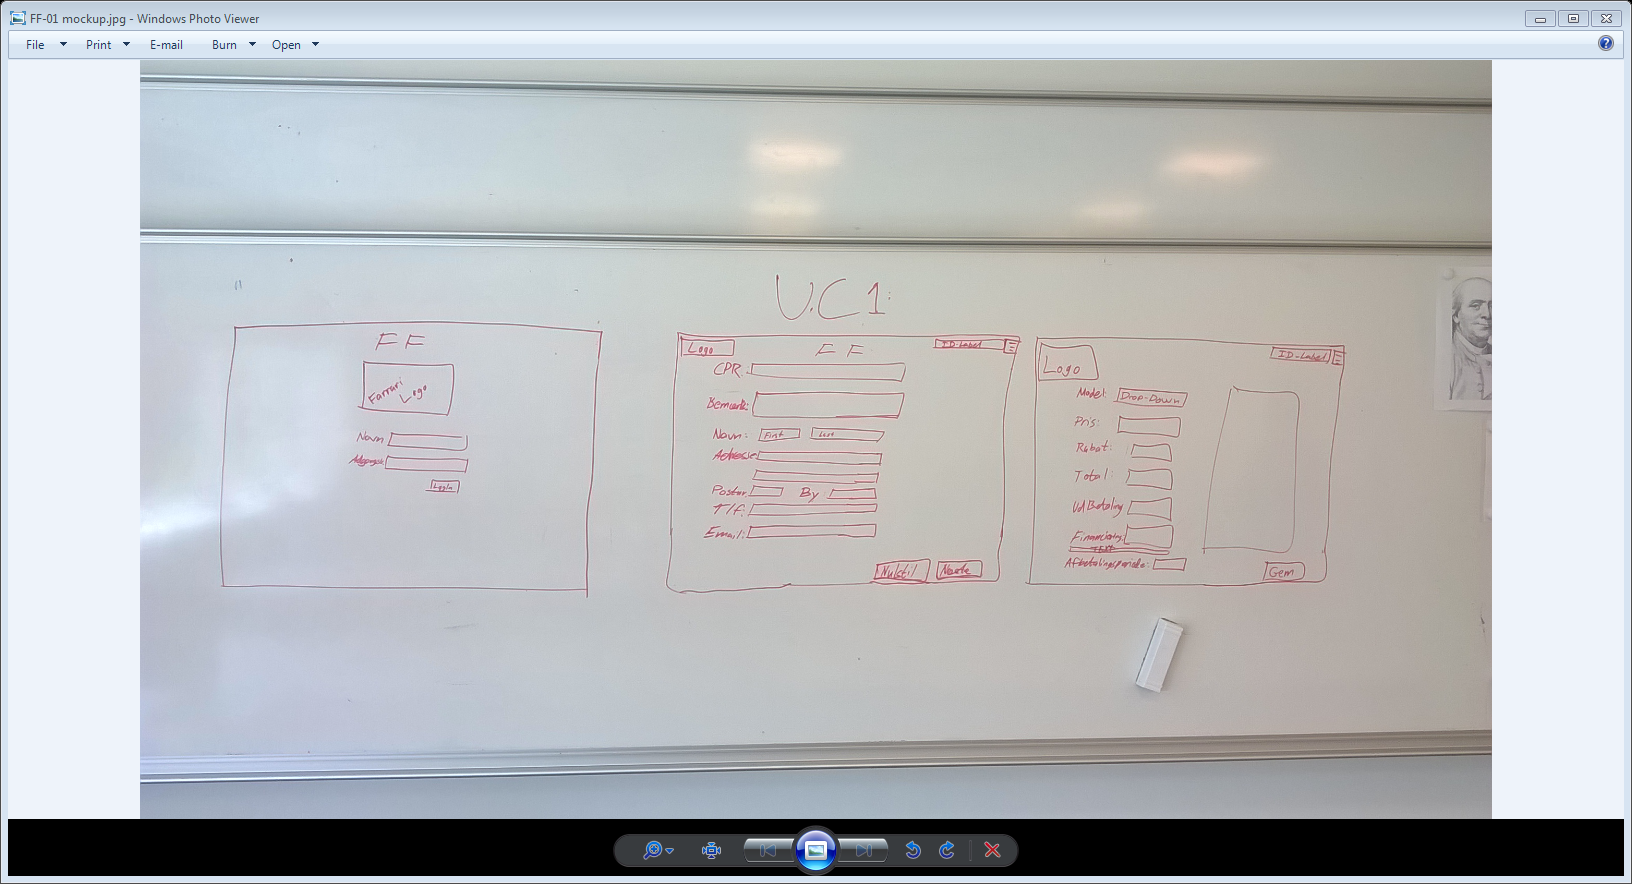 FF-01 mockup.jpg - Windows Photo Viewer
File Print E-mail Burn Open
U.C1:
FF
Farrari Logo
Navn
Login
Logo
FF
ID-Label
CPR:
Bemærk:
Navn: First Last
Adresse
Postnr. By
Tlf.
Email:
Nulstil Næste
Logo
ID-Label
Model: Drop-Down
Pris:
Rabat:
Total:
UdBetaling
Finansiering:
TEXT
Afbetalingsperiode:
Gem